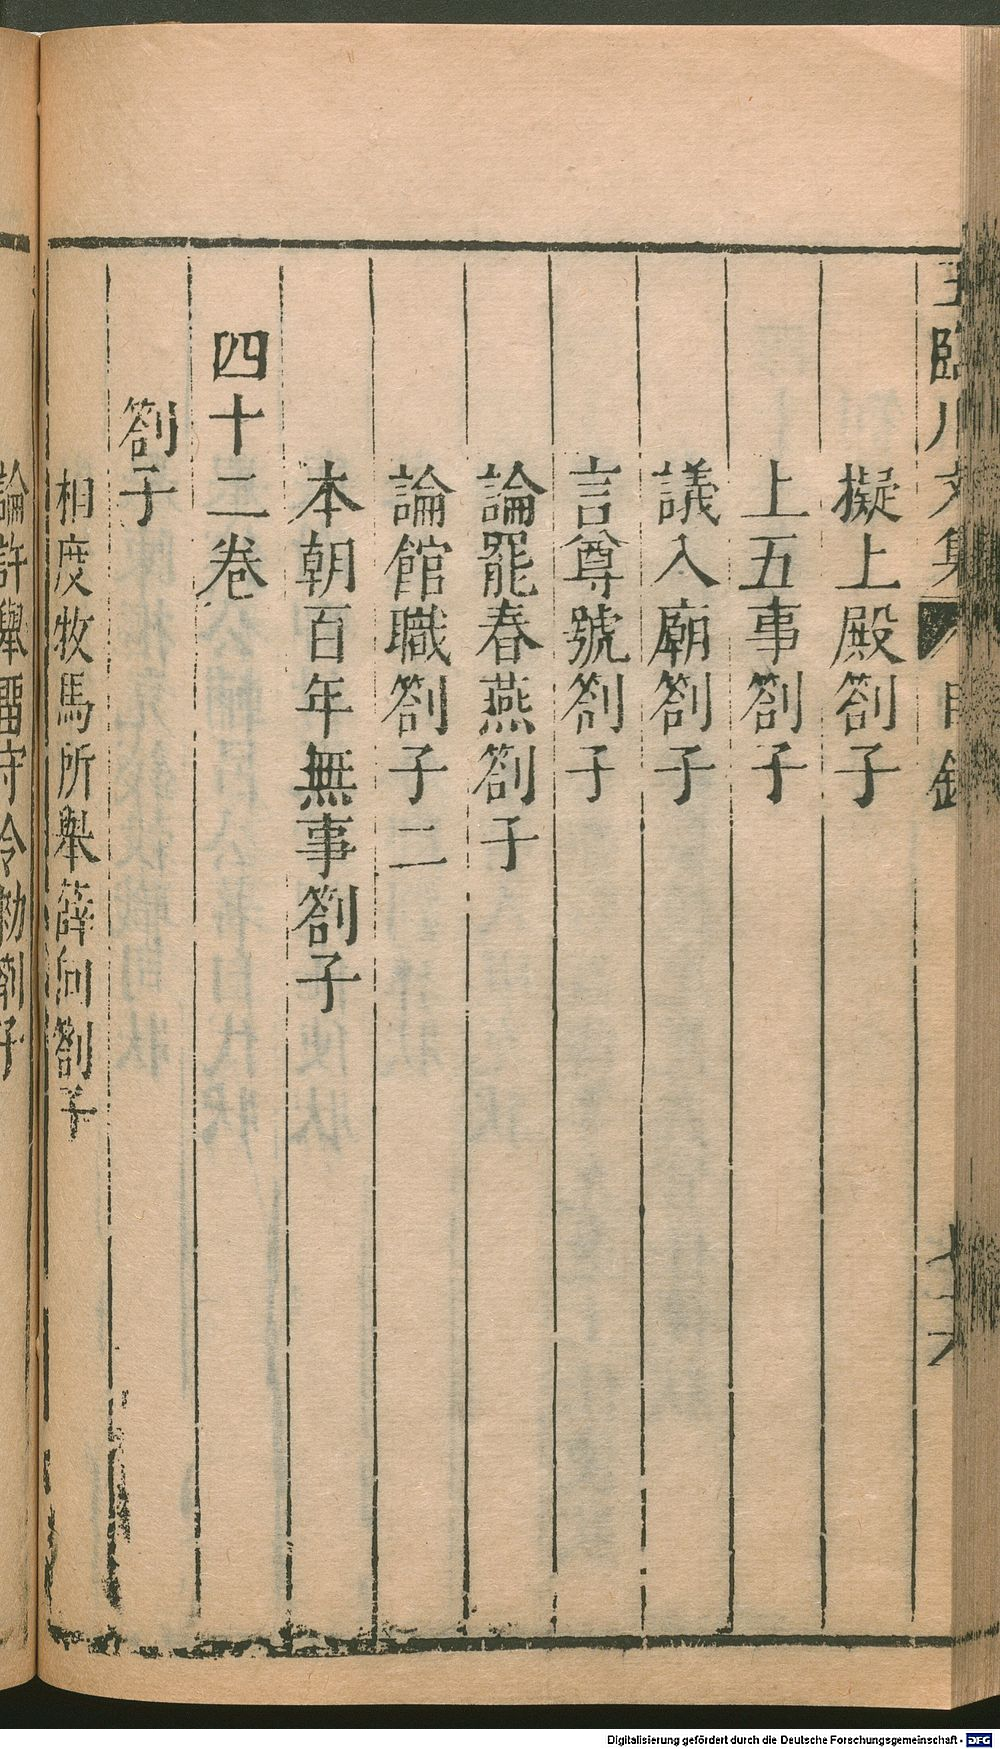 王臨川文集 目錄 七十六
擬上殿劄子
上五事劄子
議入廟劄子
言尊號劄子
論罷春燕劄子
論館職劄子二
本朝百年無事劄子
四十二卷
劄子
相度牧馬所舉薛向劄子
論許舉畱守令勑劄子
Digitalisierung gefördert durch die Deutsche Forschungsgemeinschaft - DFG